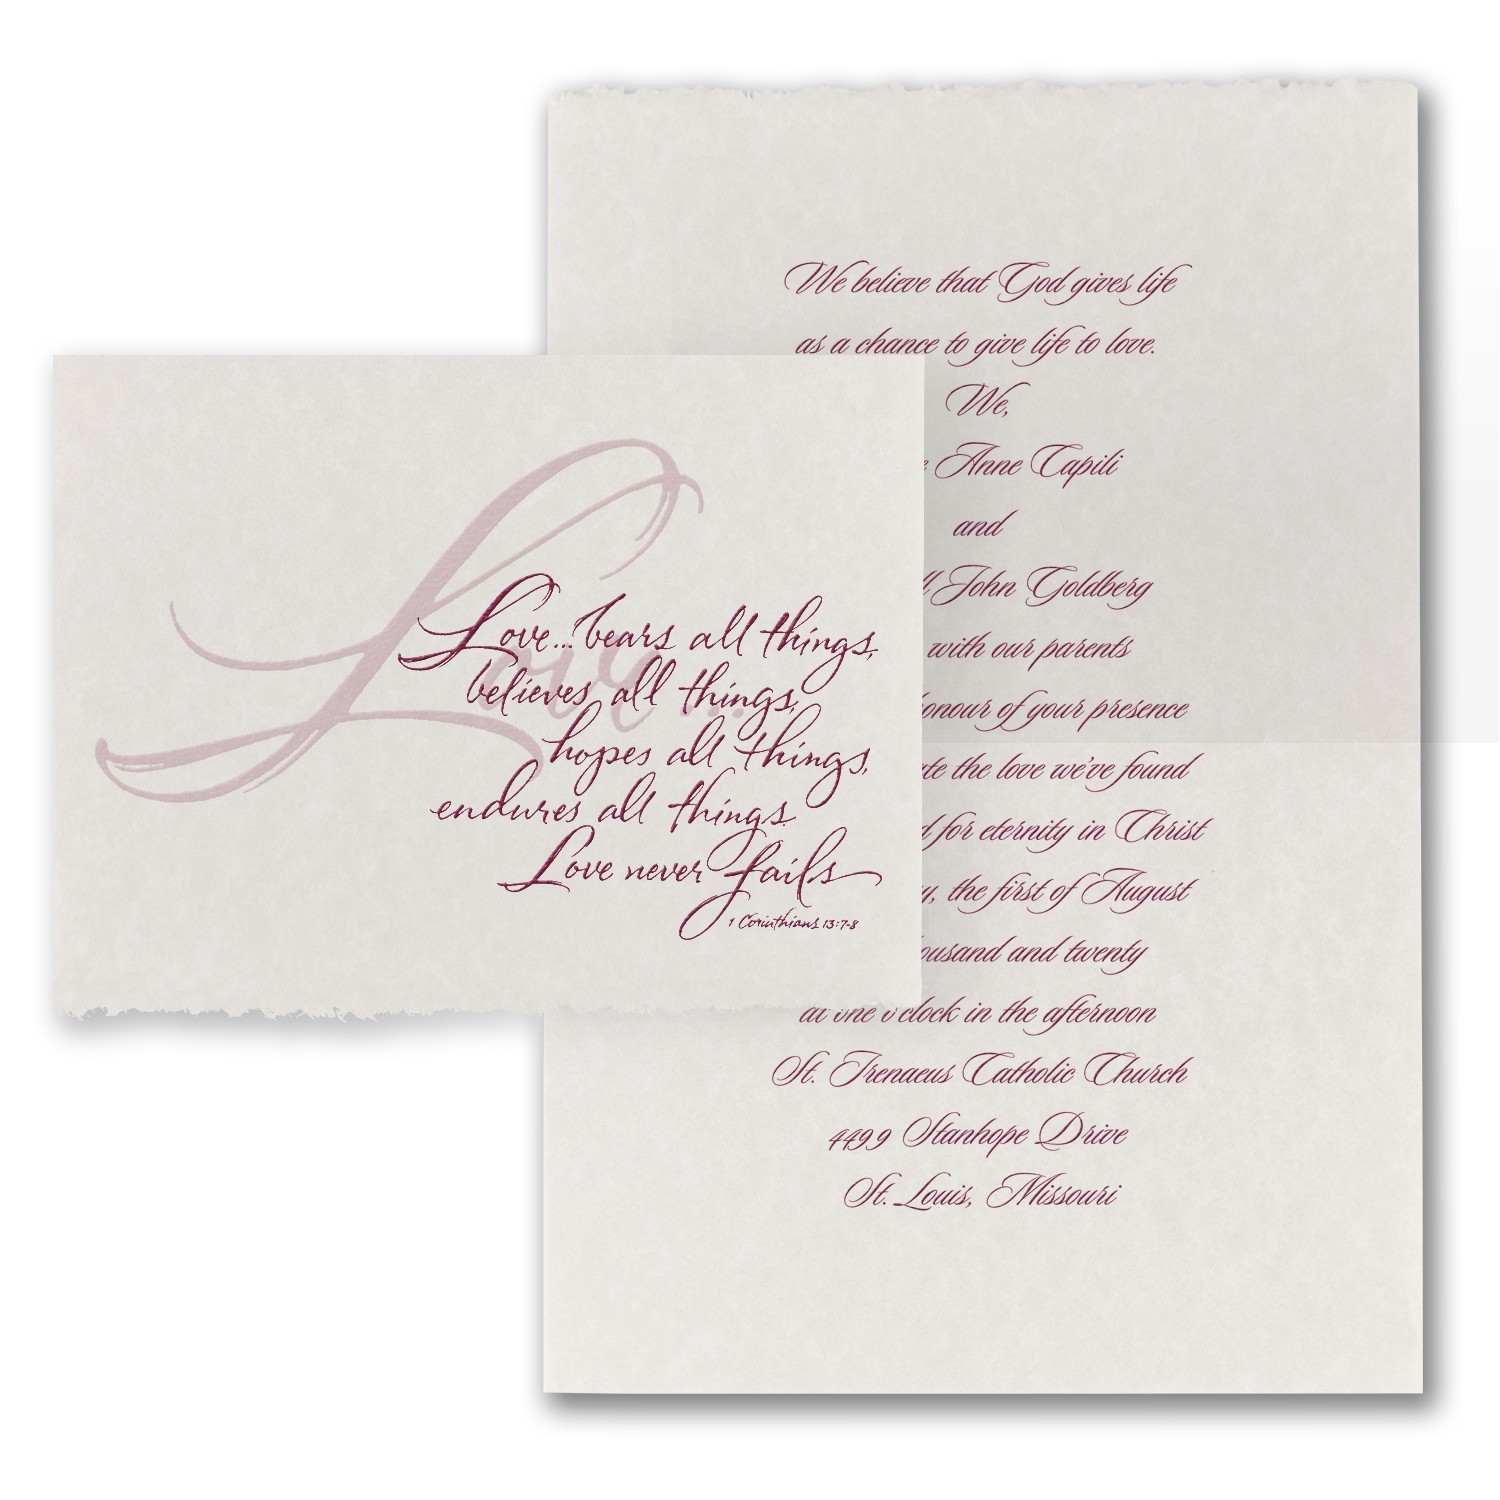 Love...
Love...bears all things,
believes all things,
hopes all things,
endures all things.
Love never fails
1 Corinthians 13:7-8
We believe that God gives life
as a chance to give life to love.
We,
Anne Capili
and
John Goldberg
with our parents
of your presence
the love we've found
for eternity in Christ
the first of August
and twenty
at one o'clock in the afternoon
St. Irenaeus Catholic Church
4499 Stanhope Drive
St. Louis, Missouri